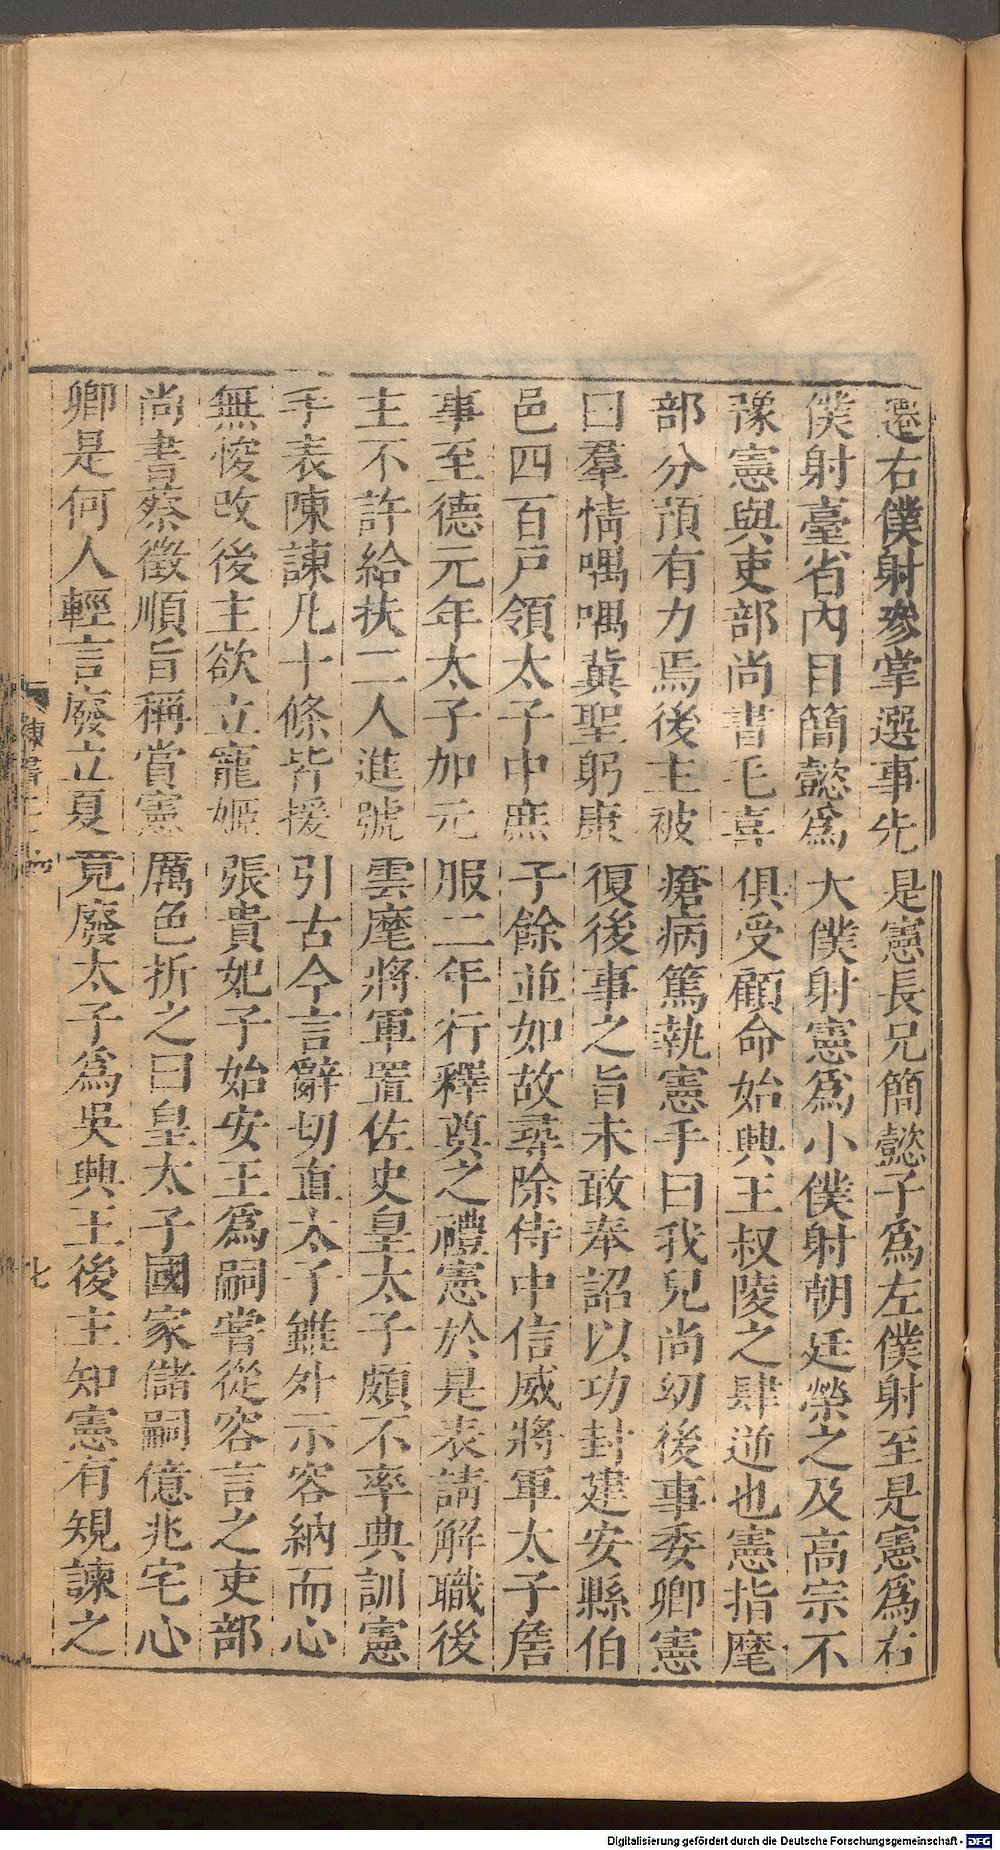 遷右僕射參掌選事先是憲長兄簡懿子爲左僕射至是憲爲右
僕射臺省內目簡懿爲大僕射憲爲小僕射朝廷榮之及高宗不
豫憲與吏部尚書毛喜俱受顧命始興王叔陵之肆逆也憲指麾
部分預有力焉後主被瘡病篤執憲手曰我兒尚幼後事委卿憲
曰羣情喁喁冀聖躬康復後事之旨未敢奉詔以功封建安縣伯
邑四百戸領太子中庶子餘並如故尋除侍中信威將軍太子詹
事至德元年太子加元服二年行釋奠之禮憲於是表請解職後
主不許給扶二人進號雲麾將軍置佐史皇太子頗不率典訓憲
手表陳諫凡十條皆援引古今言辭切直太子雖外示容納而心
無悛改後主欲立寵姬張貴妃子始安王爲嗣嘗從容言之吏部
尚書蔡徵順旨稱賞憲厲色折之曰皇太子國家儲嗣億兆宅心
卿是何人輕言廢立夏竟廢太子爲吳興王後主知憲有規諫之
陳書 七
Digitalisierung gefördert durch die Deutsche Forschungsgemeinschaft - DFG